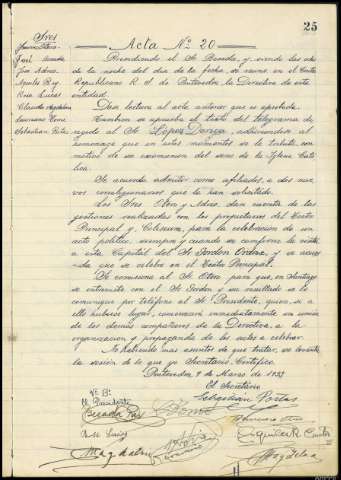 25
Sres
Acta Nº 20
Presidiendo el Sr Poceda, y siendo las ocho
de la noche del día de la fecha, se reune en el Centro
Republicano R. S. de Pontevedra, la Directiva de esta
entidad.
Dan lectura al acta anterior que es aprobada.
Tambien se aprueba el texto del telegrama di-
rigido al Sr Lopez Dariga, adhiriendose al
homenaje que en estos momentos se le tributa, con
motivo de su excomunion del seno de la Iglesia Cato-
lica.
Se acuerda admitir como afiliados, a dos nue-
vos correligionarios que lo han solicitado.
Los Sres Otero y Adrio, dan cuenta de las
gestiones realizadas con los propietarios del Teatro
Principal y Coliseum, para la celebracion de un
acto politico, siempre y cuando se confirme la visita
a esta Capital del Sr Gordon Ordax, y se acuer-
da que se celebre en el Teatro Principal.
Se comisiona al Sr Otero para que, en Santiago
se entreviste con el Sr Gordon y su resultado se lo
comunique por teléfono al Sr Presidente, quien, si a
ello hubiese lugar, convocará inmediatamente en union
de los demás compañeros de la Directiva, a la
organizacion y propaganda de los actos a celebrar.
No habiendo mas asuntos de que tratar, se levanta
la sesión de lo que yo Secretario Certifico.
Pontevedra, 9 de Marzo de 1933
El Secretario
Sebastian Pintos
Vº Bº
El Presidente